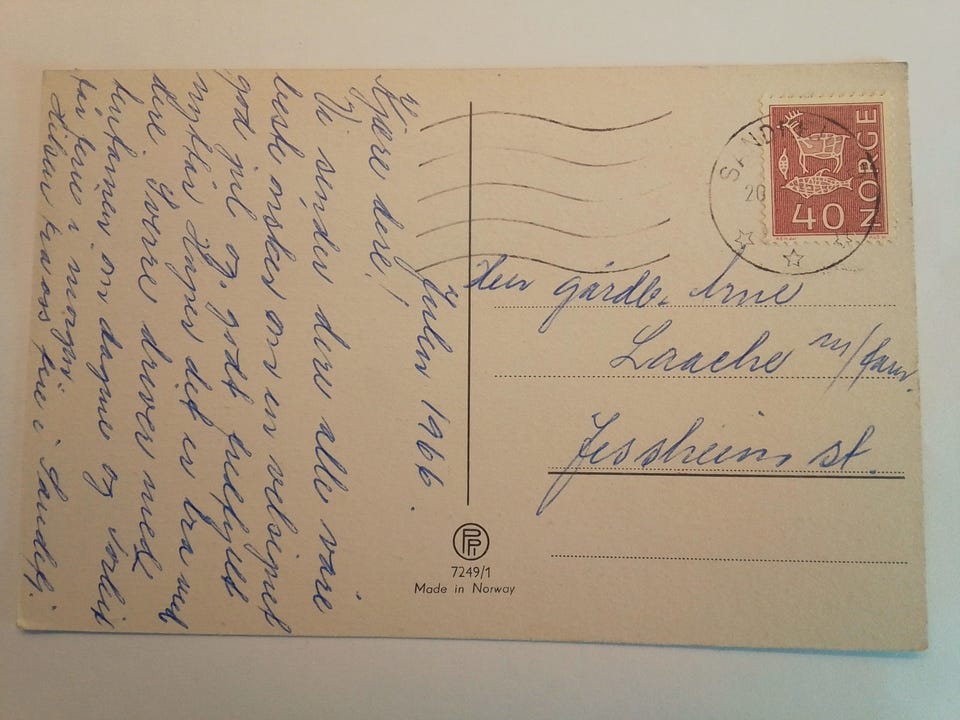 Kjære dere! Julen 1966.
Vi sender dere alle våre
beste ønsker om en velsignet
god jul og godt fredfyld
nyttår. Håper det er bra med
dere. Sverre driver med
fentannen om dagene og
får ferie i morgen.
Hilsen fra oss i Sandefj.
SANDE
20
NORGE
40
Herr gårdb. Arne
Laache m/fam.
Jessheim st.
PP
7249/1
Made in Norway